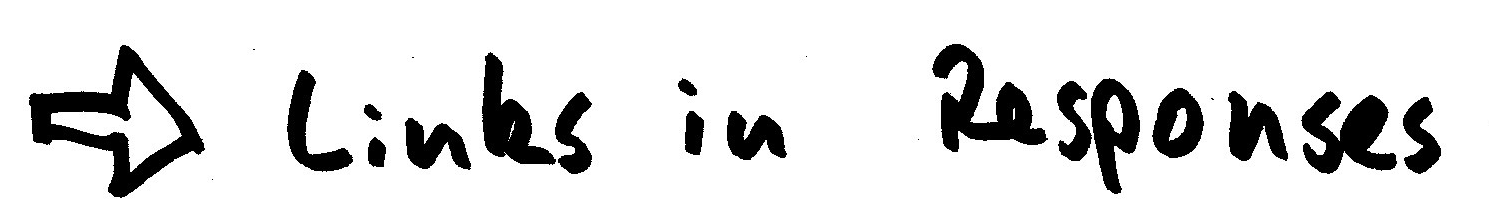 Links in Responses